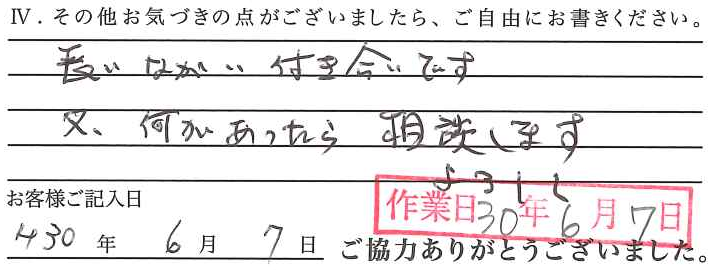 Ⅳ．その他お気づきの点がございましたら、ご自由にお書きください。
長いながい付き合いです
又、何かあったら 相談します
よろしく
お客様ご記入日
作業日30年6月7日
H30年 6月 7日
ご協力ありがとうございました。